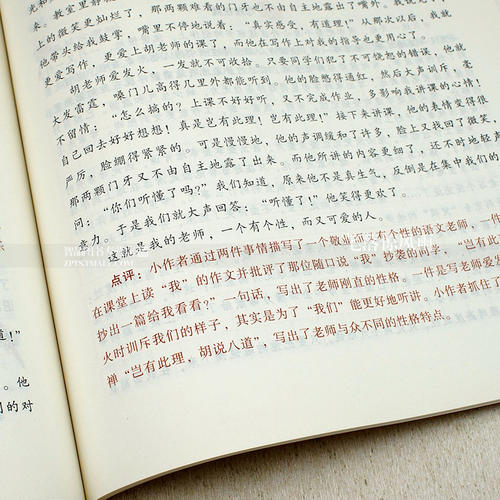 光和
教室里
来。教室里
那两颗难看的门牙也不由自主地露出了嘴外。我
上的微笑更灿烂了，嘴里不停地说着：“真实感受，有道理！”从那次以后，我就
他带头给我鼓掌，
更爱写作，更爱上胡老师的课了，而他在写作上对我的指导也更用心了。
胡老师爱发火，一发就不可收拾。只要同学们犯了不可饶恕的错误，他就
大发雷霆，嗓门儿高得几里外都能听到。他的脸憋得通红，然后大声训斥，毫
不留情：“怎么搞的？上课不好好听，又不完成作业，多影响我讲课的心情！
自己回去好好想想！真是岂有此理！岂有此理！”接下来讲课，他的表情变得很
严厉，脸绷得紧紧的。可是慢慢地，他的声调缓和了许多，脸上又找回了微笑，
那两颗门牙又不由自主地露了出来。而他所讲的内容更细了，还不时地轻声
问：“你们听懂了吗？”我们知道，原来他不是真生气，反倒是在集中我们的
意力。于是我们就大声回答：“听懂了！”他笑得更欢了。
这就是我的老师，一个有个性，而又可爱的人。
点评：小作者通过两件事情描写了一个敬业又具有个性的语文老师，一件
在课堂上读“我”的作文并批评了那位随口说“我”抄袭的同学，“岂有此
抄出一篇给我看看？”一句话，写出了老师刚直的性格。一件是写老师爱发
火时训斥我们的样子，其实是为了“我们”能更好地听讲。小作者抓住了
禅“岂有此理，胡说八道”，写出了老师与众不同的性格特点。
道！”
。他
的对